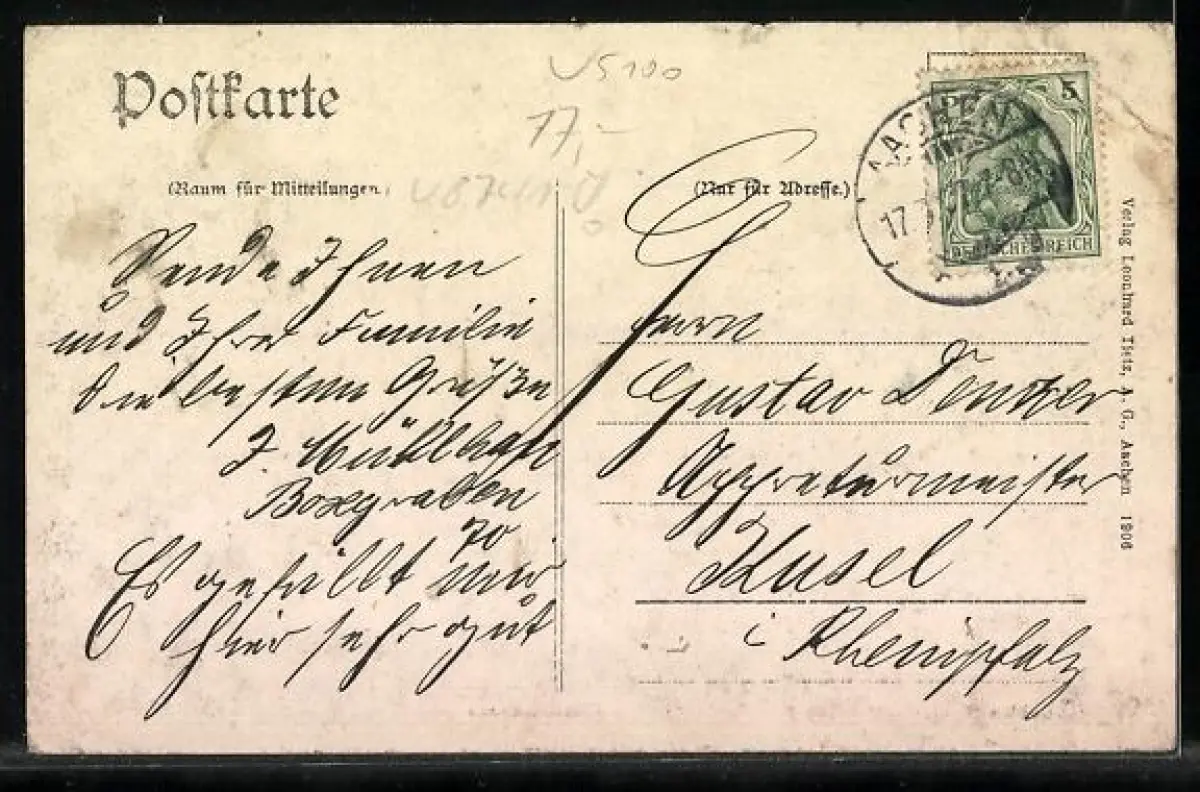 Postkarte
(Raum für Mitteilungen)
(Nur für Adresse.)
VS100
17,-
AACHEN
17.
5
DEUTSCHES REICH
Sende Ihnen
und Ihrer Familie
die besten Grüße
J. Müllhan
Boxgraben
70
Es gefällt mir
hier sehr gut
Herrn
Gustav
Appreturmeister
Kusel
i Rheinpfalz
Verlag Leonhard Tietz, A. G., Aachen 1906